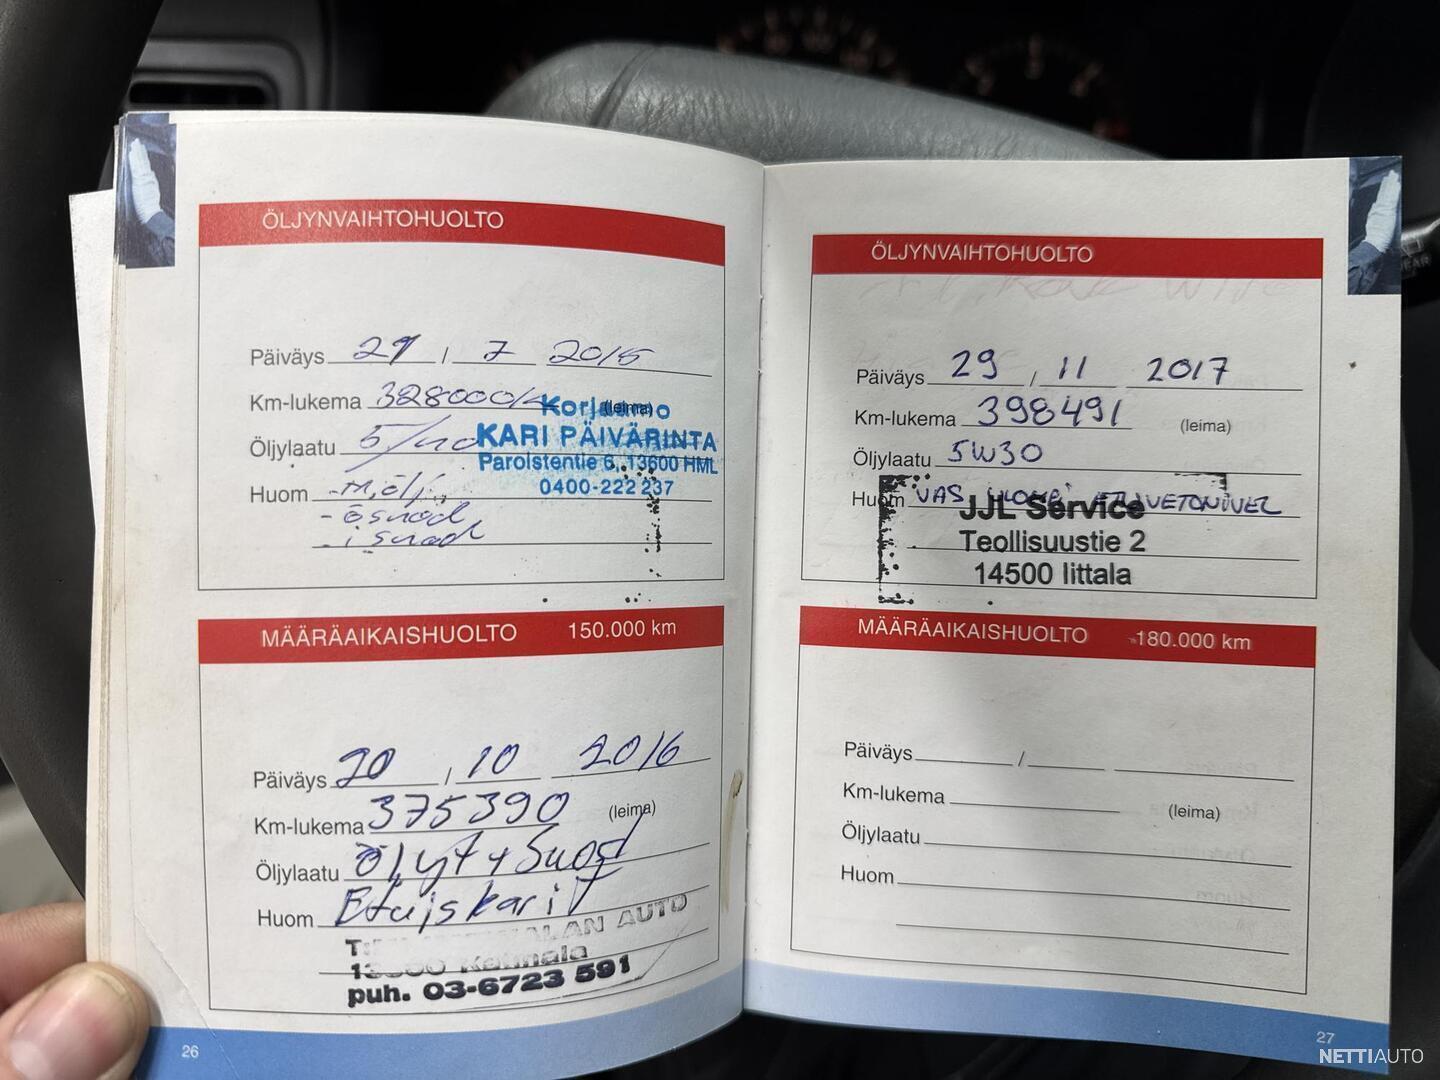 ÖLJYNVAIHTOHUOLTO
Päiväys 29 / 7 2015
Km-lukema 328000 (leima)
Korjaamo
KARI PÄIVÄRINTA
Paroistentie 6, 13600 HML
0400-222 237
Öljylaatu 5/40
Huom - M,ölj.
- ö suod
- i suod
MÄÄRÄAIKAISHUOLTO 150.000 km
Päiväys 20 / 10 2016
Km-lukema 375390 (leima)
Öljylaatu Öljyt + Suod
Huom Etuiskarit
AUTO
puh. 03-6723 591
26
ÖLJYNVAIHTOHUOLTO
Päiväys 29 / 11 2017
Km-lukema 398491 (leima)
Öljylaatu 5W30
Huom VAS ULOMPI ETUVETONIVEL
JJL Service
Teollisuustie 2
14500 Iittala
MÄÄRÄAIKAISHUOLTO 180.000 km
Päiväys /
Km-lukema (leima)
Öljylaatu
Huom
27
NETTIAUTO